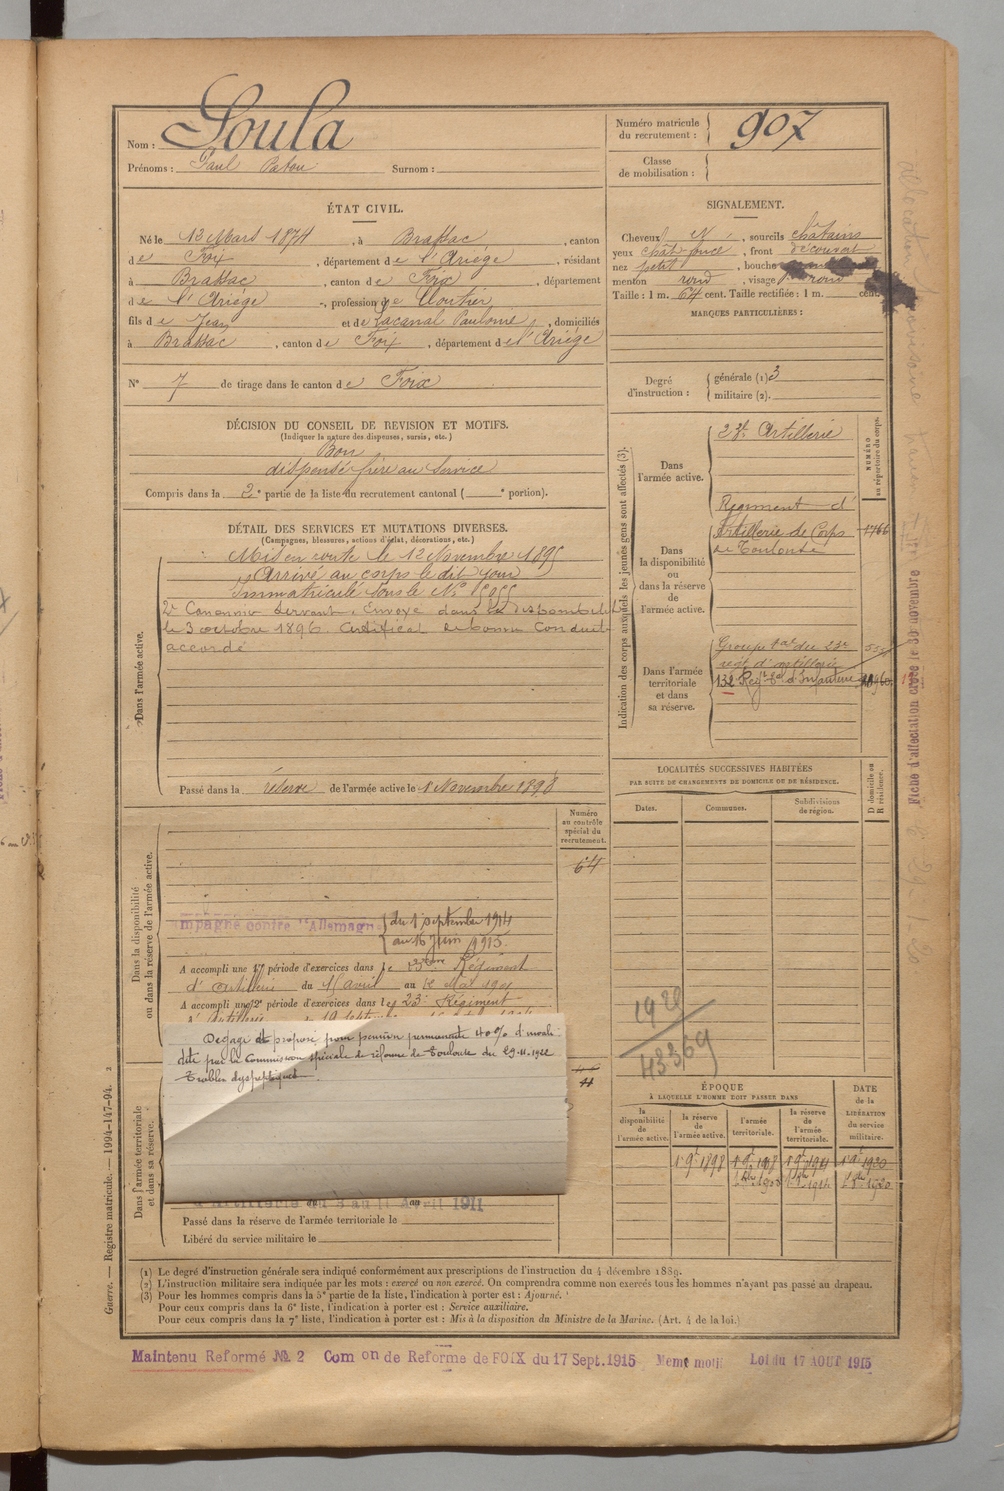 Nom : Soula
Prénoms : Paul Surnom :
Numéro matricule du recrutement : 907
Classe de mobilisation :
ÉTAT CIVIL.
Né le 12 Mars 1874, à Brassac, canton
de Foix, département de l'Ariège, résidant
à Brassac, canton de Foix, département
de l'Ariège, profession de Cloutier
fils de Jean et de Lacanal Pauline, domiciliés
à Brassac, canton de Foix, département de l'Ariège
N° 7 de tirage dans le canton de Foix
SIGNALEMENT.
Cheveux N, sourcils châtains
yeux chât. foncé, front découvert
nez petit, bouche
menton rond, visage rond
Taille : 1 m. 64 cent. Taille rectifiée : 1 m. cent.
MARQUES PARTICULIÈRES :
Degré d'instruction : générale (1) 3
militaire (2).
DÉCISION DU CONSEIL DE REVISION ET MOTIFS.
(Indiquer la nature des dispenses, sursis, etc.)
Bon
dispensé frère au service
Compris dans la 2e partie de la liste du recrutement cantonal ( e portion).
DÉTAIL DES SERVICES ET MUTATIONS DIVERSES.
(Campagnes, blessures, actions d'éclat, décorations, etc.)
Dans l'armée active.
Mis en route le 12 Novembre 1895
Arrivé au corps le dit jour
Immatriculé sous le N°
2e Canonnier servant. Envoyé dans la disponibilité
le 3 octobre 1896. Certificat de bonne conduite
accordé
Passé dans la réserve de l'armée active le 1 Novembre 1898
Indication des corps auxquels les jeunes gens sont affectés (3).
NUMÉRO au répertoire du corps.
Dans l'armée active.
23e Artillerie
Dans la disponibilité ou dans la réserve de l'armée active.
Régiment d'
Artillerie de Corps 1766
de Toulouse
Dans l'armée territoriale et dans sa réserve.
Groupe tal du 23e
régt d'artillerie
132 Regt tal d'Infanterie
LOCALITÉS SUCCESSIVES HABITÉES
PAR SUITE DE CHANGEMENTS DE DOMICILE OU DE RÉSIDENCE.
Dates. Communes. Subdivisions de région. D domicile ou R résidence.
Numéro au contrôle spécial du recrutement.
64
Dans la disponibilité ou dans la réserve de l'armée active.
mpagne contre l'Allemagne du 1 septembre 1914
au 16 Juin 1915.
A accompli une 1re période d'exercices dans le 23eme Régiment
d'Artillerie du 15 avril au 12 mai 1901
A accompli une 2e période d'exercices dans le 23e Régiment
Degagé et proposé pour pension permanente 40% d'invali-
dité par la Commission spéciale de réforme de Toulouse du 29-11-1922
Troubles dyspeptiques.
Dans l'armée territoriale et dans sa réserve.
d'Artillerie du 3 au 11 Avril 1911
Passé dans la réserve de l'armée territoriale le
Libéré du service militaire le
1929
43369
ÉPOQUE
À LAQUELLE L'HOMME DOIT PASSER DANS
la disponibilité de l'armée active.
la réserve de l'armée active.
l'armée territoriale.
la réserve de l'armée territoriale.
DATE de la LIBÉRATION du service militaire.
(1) Le degré d'instruction générale sera indiqué conformément aux prescriptions de l'instruction du 4 décembre 1889.
(2) L'instruction militaire sera indiquée par les mots : exercé ou non exercé. On comprendra comme non exercés tous les hommes n'ayant pas passé au drapeau.
(3) Pour les hommes compris dans la 5e partie de la liste, l'indication à porter est : Ajourné.
Pour ceux compris dans la 6e liste, l'indication à porter est : Service auxiliaire.
Pour ceux compris dans la 7e liste, l'indication à porter est : Mis à la disposition du Ministre de la Marine. (Art. 4 de la loi.)
Maintenu Reformé № 2 Com on de Reforme de FOIX du 17 Sept. 1915 Meme motif Loi du 17 AOUT 1915
Guerre. — Registre matricule. — 1994-147-94. 2
Fiche d'affectation créée le 30 novembre